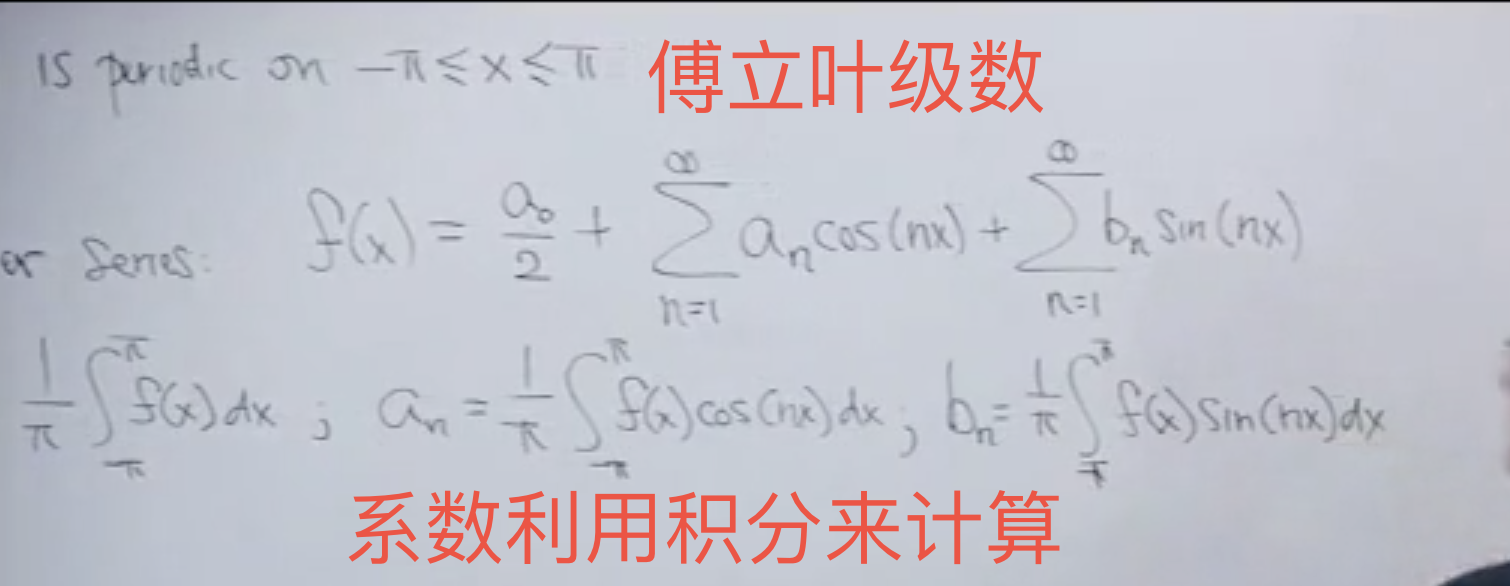 is periodic on −π ≤ x ≤ π 傅立叶级数
er Series: f(x) = a₀/2 + ∑_{n=1}^{∞} aₙ cos(nx) + ∑_{n=1}^{∞} bₙ sin(nx)
1/π ∫_{-π}^{π} f(x) dx ; aₙ = 1/π ∫_{-π}^{π} f(x) cos(nx) dx ; bₙ = 1/π ∫_{-π}^{π} f(x) sin(nx) dx
系数利用积分来计算